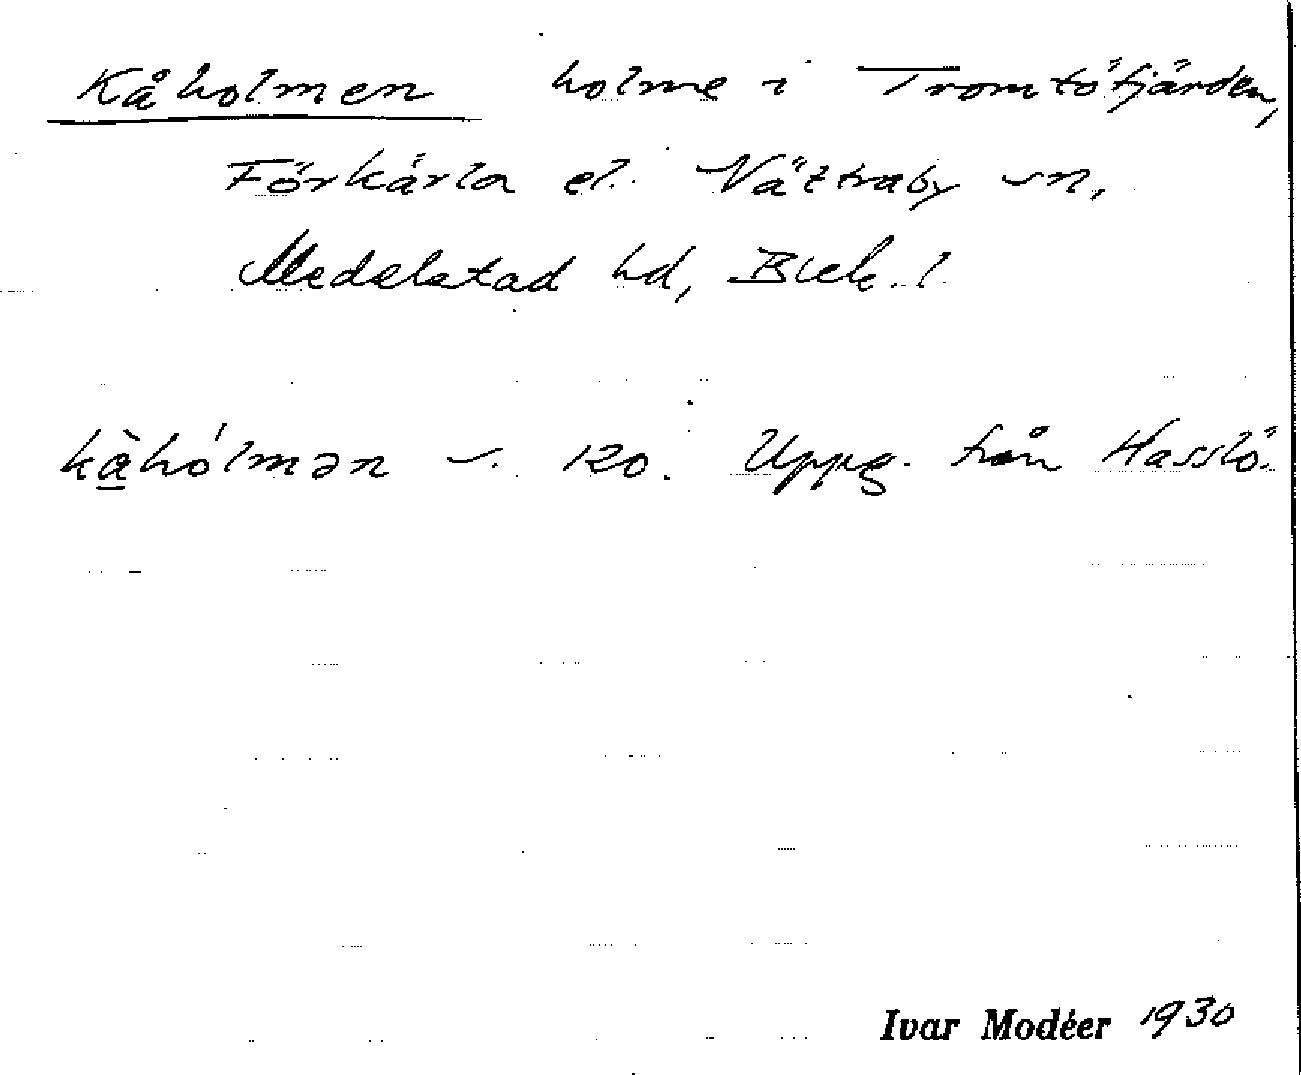 Kåholmen holme i Tromtöfjärden,
Förkärla el. Nättraby sn,
Medelstad hd, Blek. l.
kåhólmən s. 120. Uppg. från Hasslö.
Ivar Modéer 1930